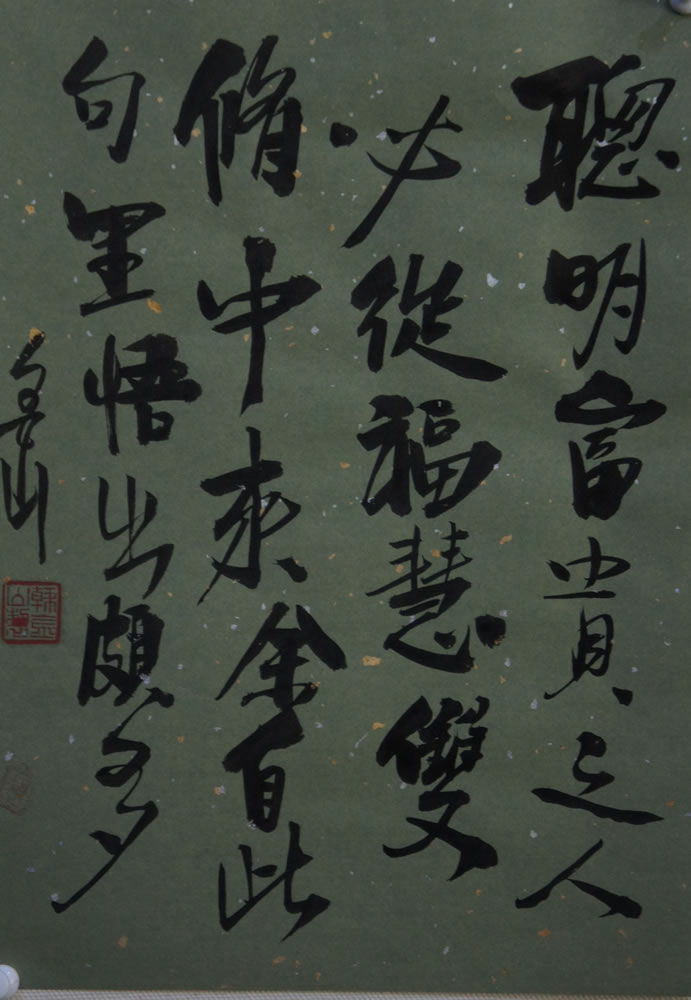 聰明富貴之人
必從福慧雙
脩中來余自此
句里悟出頗多